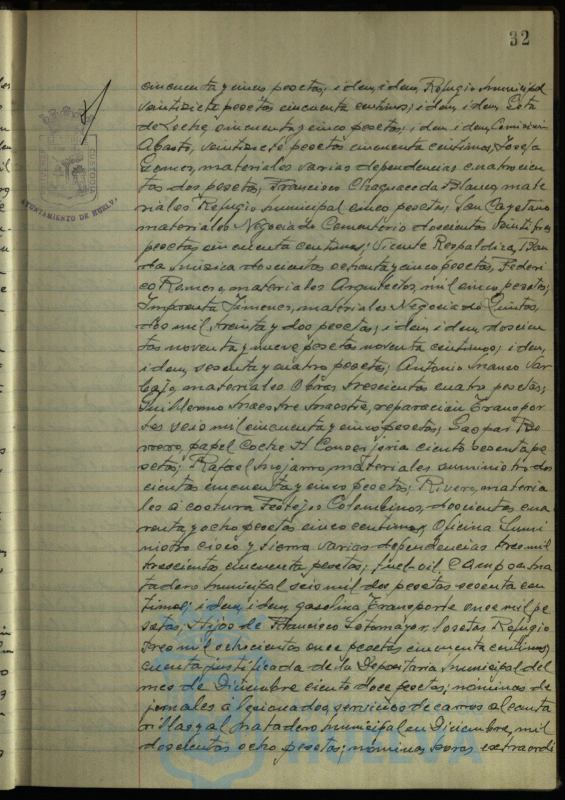 32
cincuenta y cinco pesetas; idem, idem, Refugio Municipal
veintisiete pesetas cincuenta centimos; idem, idem Gota
de Leche, cincuenta y cinco pesetas; idem, idem, Comision
Abasto, veintisiete pesetas cincuenta centimos; Josefa
Gomez, materiales varias dependencias cuatrocien
tas dos pesetas; Francisco Chaguaceda Blanco, mate
riales Refugio Municipal cinco pesetas; San Cayetano
materiales Negociado Cementerio doscientas veintitres
pesetas cincuenta centimos; Vicente Respaldiza, Ban
da musica doscientas ochenta y cinco pesetas, Federi
co Romero, materiales Arquitectos, mil cinco pesetas;
Imprenta Jimenez, materiales Negociado Quintas,
dos mil treinta y dos pesetas; idem, idem, doscien
tas noventa y nueve pesetas noventa centimos; idem,
idem, sesenta y cuatro pesetas; Antonio
materiales Obras trescientas cuatro pesetas;
Guillermo Maestre Maestre, reparacion Transpor
tes seis mil cincuenta y cinco pesetas; Gaspar Ro
mero, papel Coche H Conserjeria ciento sesenta pe
setas; Rafael Mojarro, materiales suministro dos
cientas cincuenta y cinco pesetas; Rivero, materia
les a costura Festejos Colombinos, doscientas cua
renta y ocho pesetas cinco centimos, Oficina Sumi
nistro cisco y sierra varias dependencias tres mil
trescientas cincuenta pesetas; fuel-oil Campsa Ma
tadero Municipal seis mil dos pesetas sesenta cen
timos; idem, idem, gasolina Transporte once mil pe
setas; Hijos de Francisco Sotomayor, losetas Refugio
tres mil ochocientas once pesetas cincuenta centimos,
cuenta justificada de la Depositaria Municipal del
mes de Diciembre ciento doce pesetas; nóminas de
jornales á servicios de carros alcanta
rillas y al Matadero Municipal en Diciembre, mil
doscientas ocho pesetas; nóminas horas extraordi
AYUNTAMIENTO DE HUELVA
HUELVA